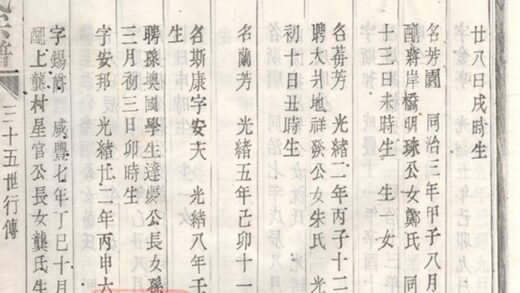 廿八日戌時生
名芳園 同治三年甲子八月
酷齋岸橋明珠公女鄭氏 同
十三日未時生 生一女
名蕎芳 光緒二年丙子十二
聘大井地祥發公女朱氏 光
初十日丑時生
名蘭芳 光緒五年己卯十一
生
名斯康字安夫 光緒八年壬
聘孫奧國學生達蒙公長女孫
三月初三日卯時生
字安邦 光緒廿二年丙申六
字錫 咸豐七年丁巳十月
上龔村星官公長女龔氏生
宗譜
三十五世行傳